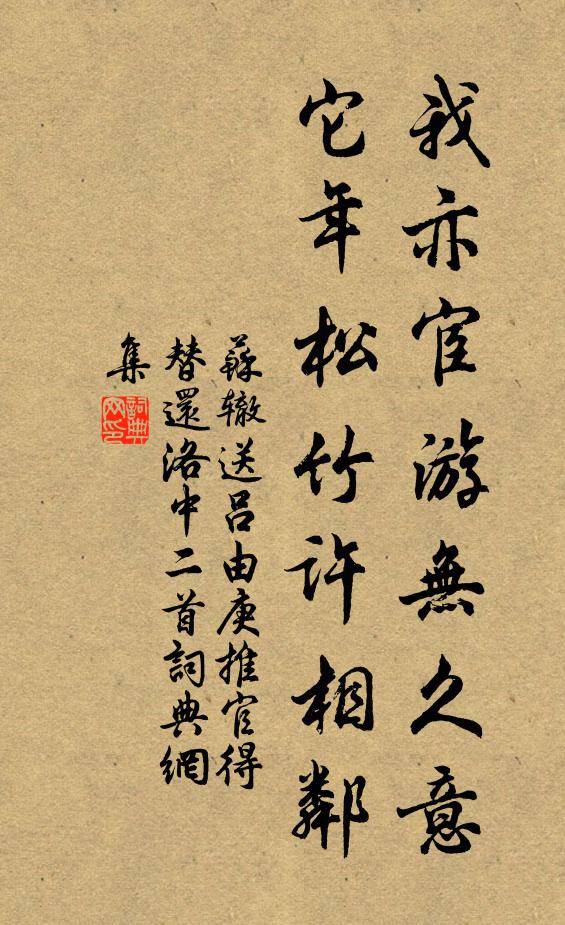 我亦宦游無久意
它年松竹許相鄰
蘇轍送呂由庚推官得
替還洛中二首詞典網
集
詞典
网印